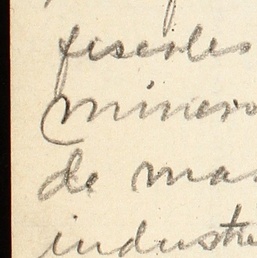 fiscales
minero
de mas
industri